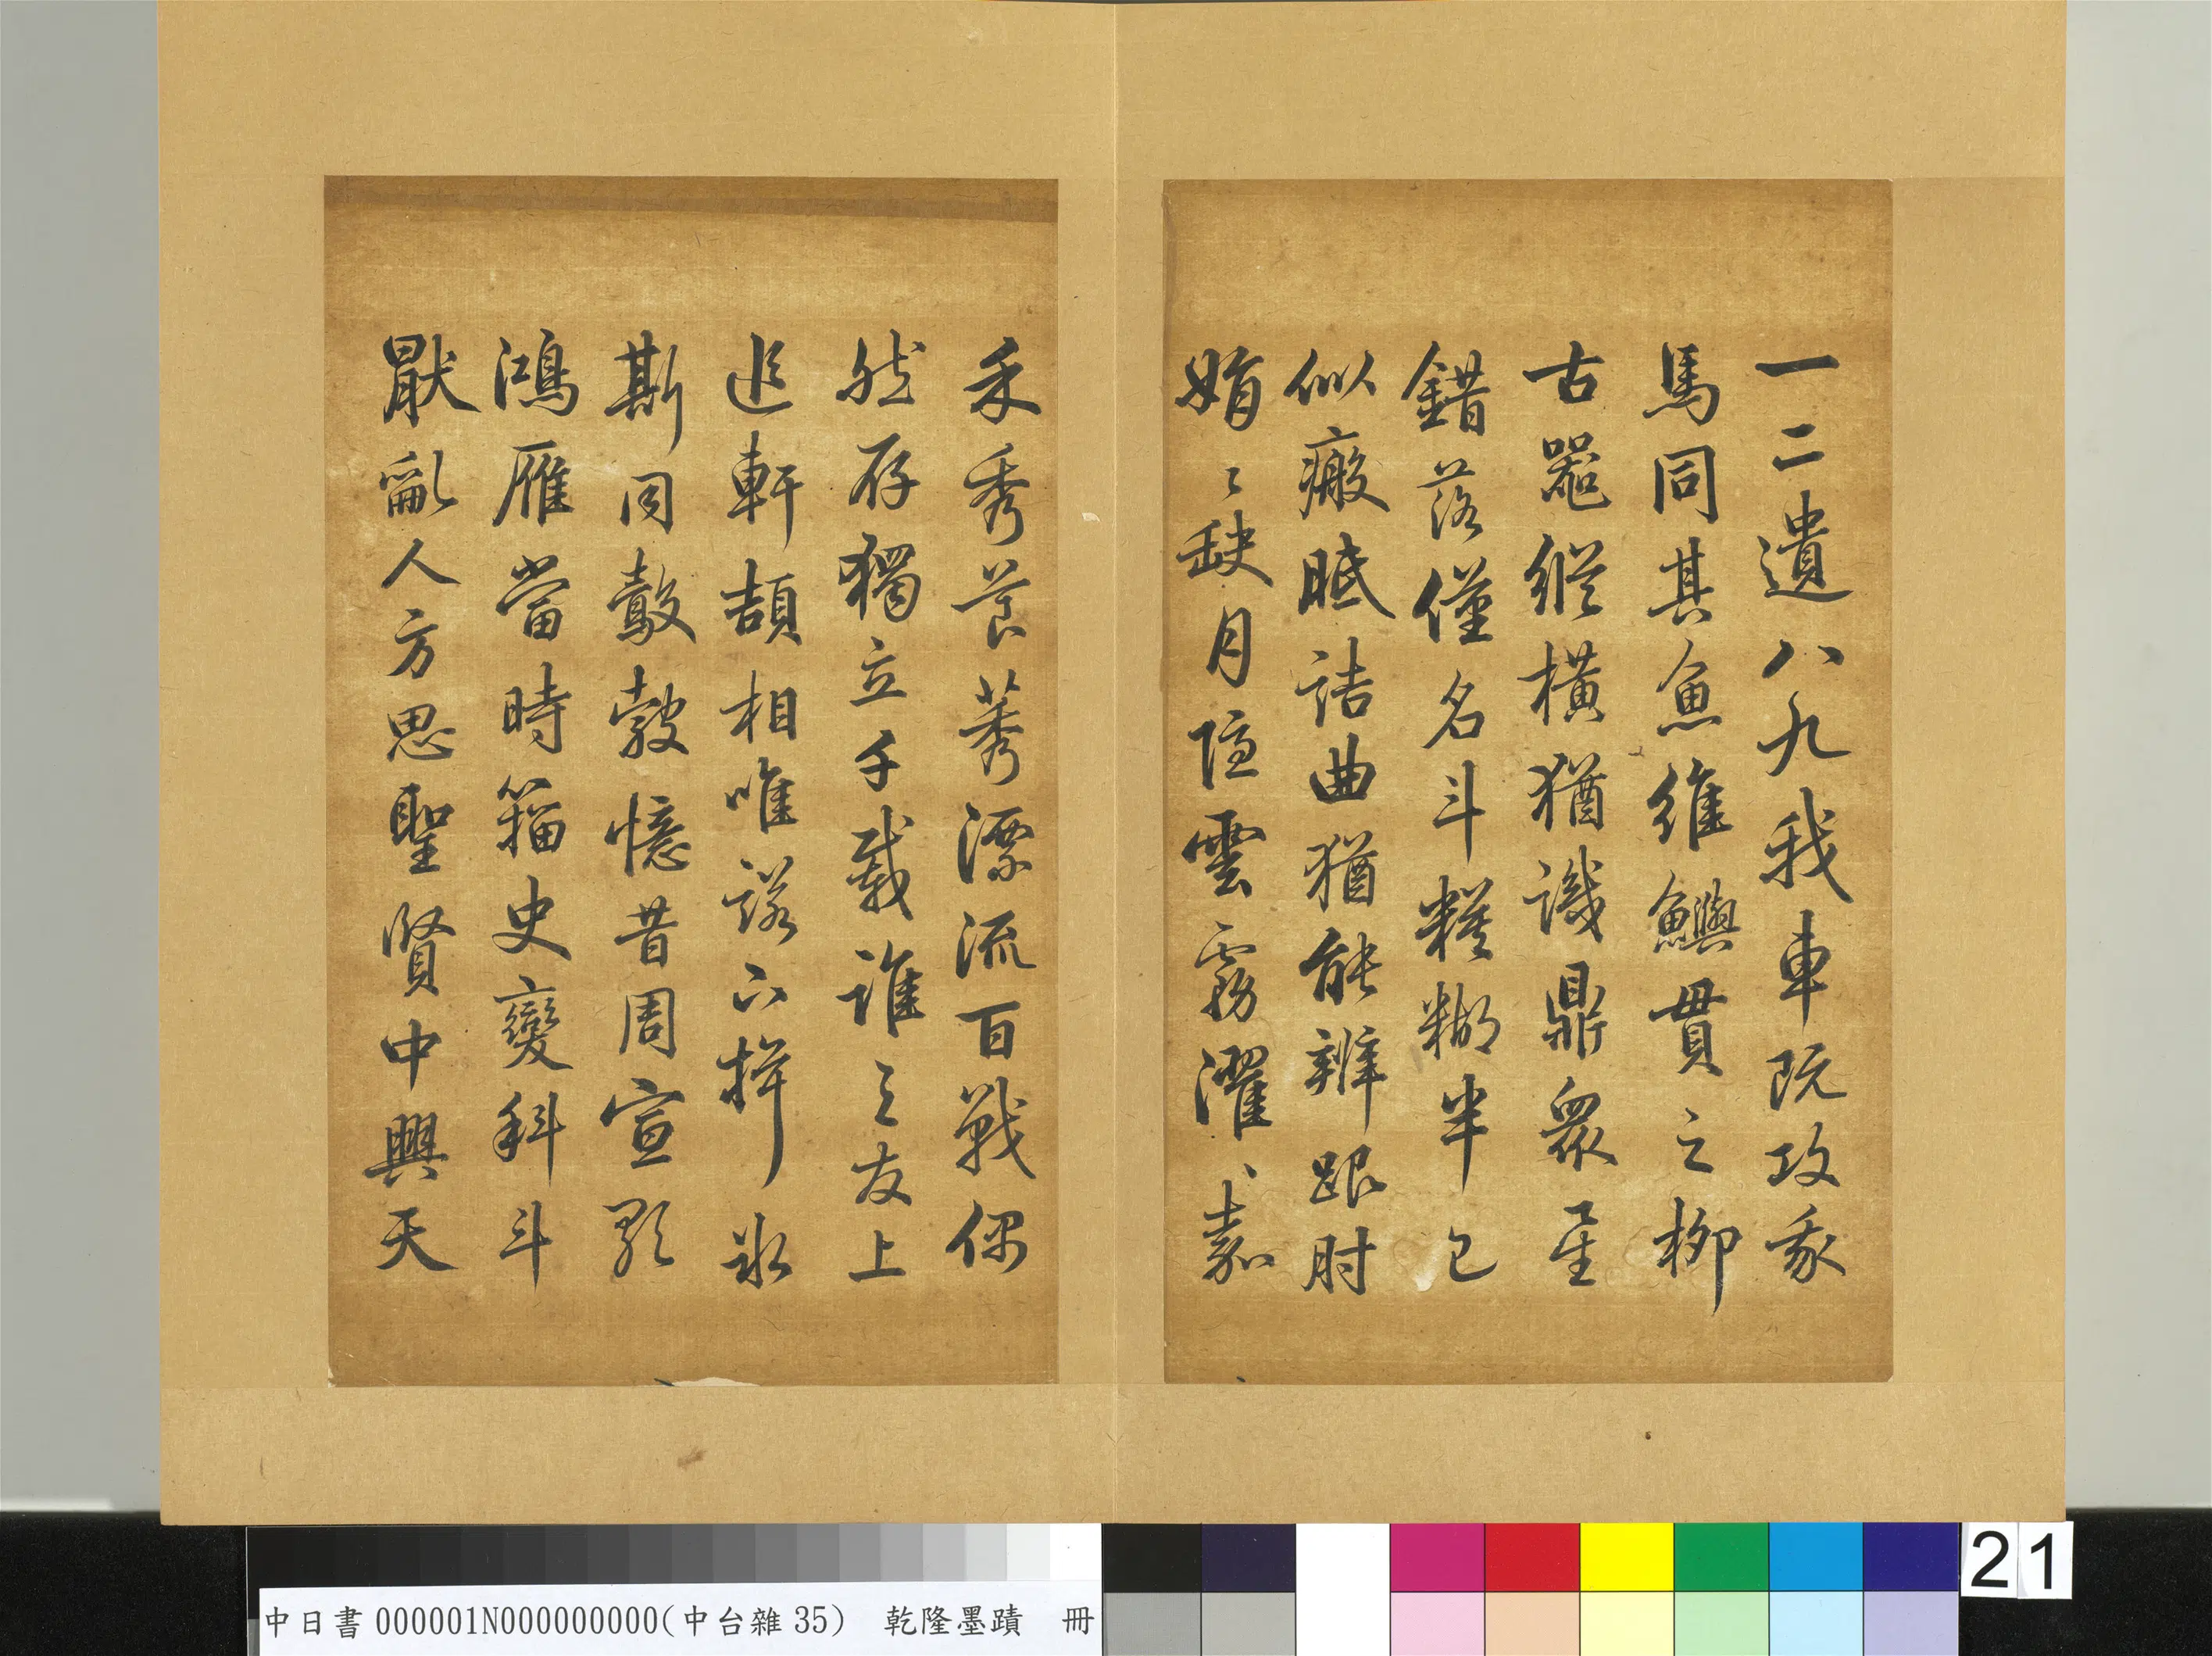 一二遺八九我車既攻我
馬同其魚維鱮貫之柳
古器縱横猶識鼎衆星
錯落僅名斗糢糊半已
似瘢胝詰曲猶能辨跟肘
娟〻缺月隐雲霧濯〻嘉
禾秀莨莠漂流百戰偶
然存獨立千載誰与友上
追軒頡相唯諾下揖冰
斯同鷇㝅憶昔周宣歌
鴻雁當時籀史變科斗
厭亂人方思聖賢中興天
中日書000001N000000000(中台雜35) 乾隆墨蹟 冊
21